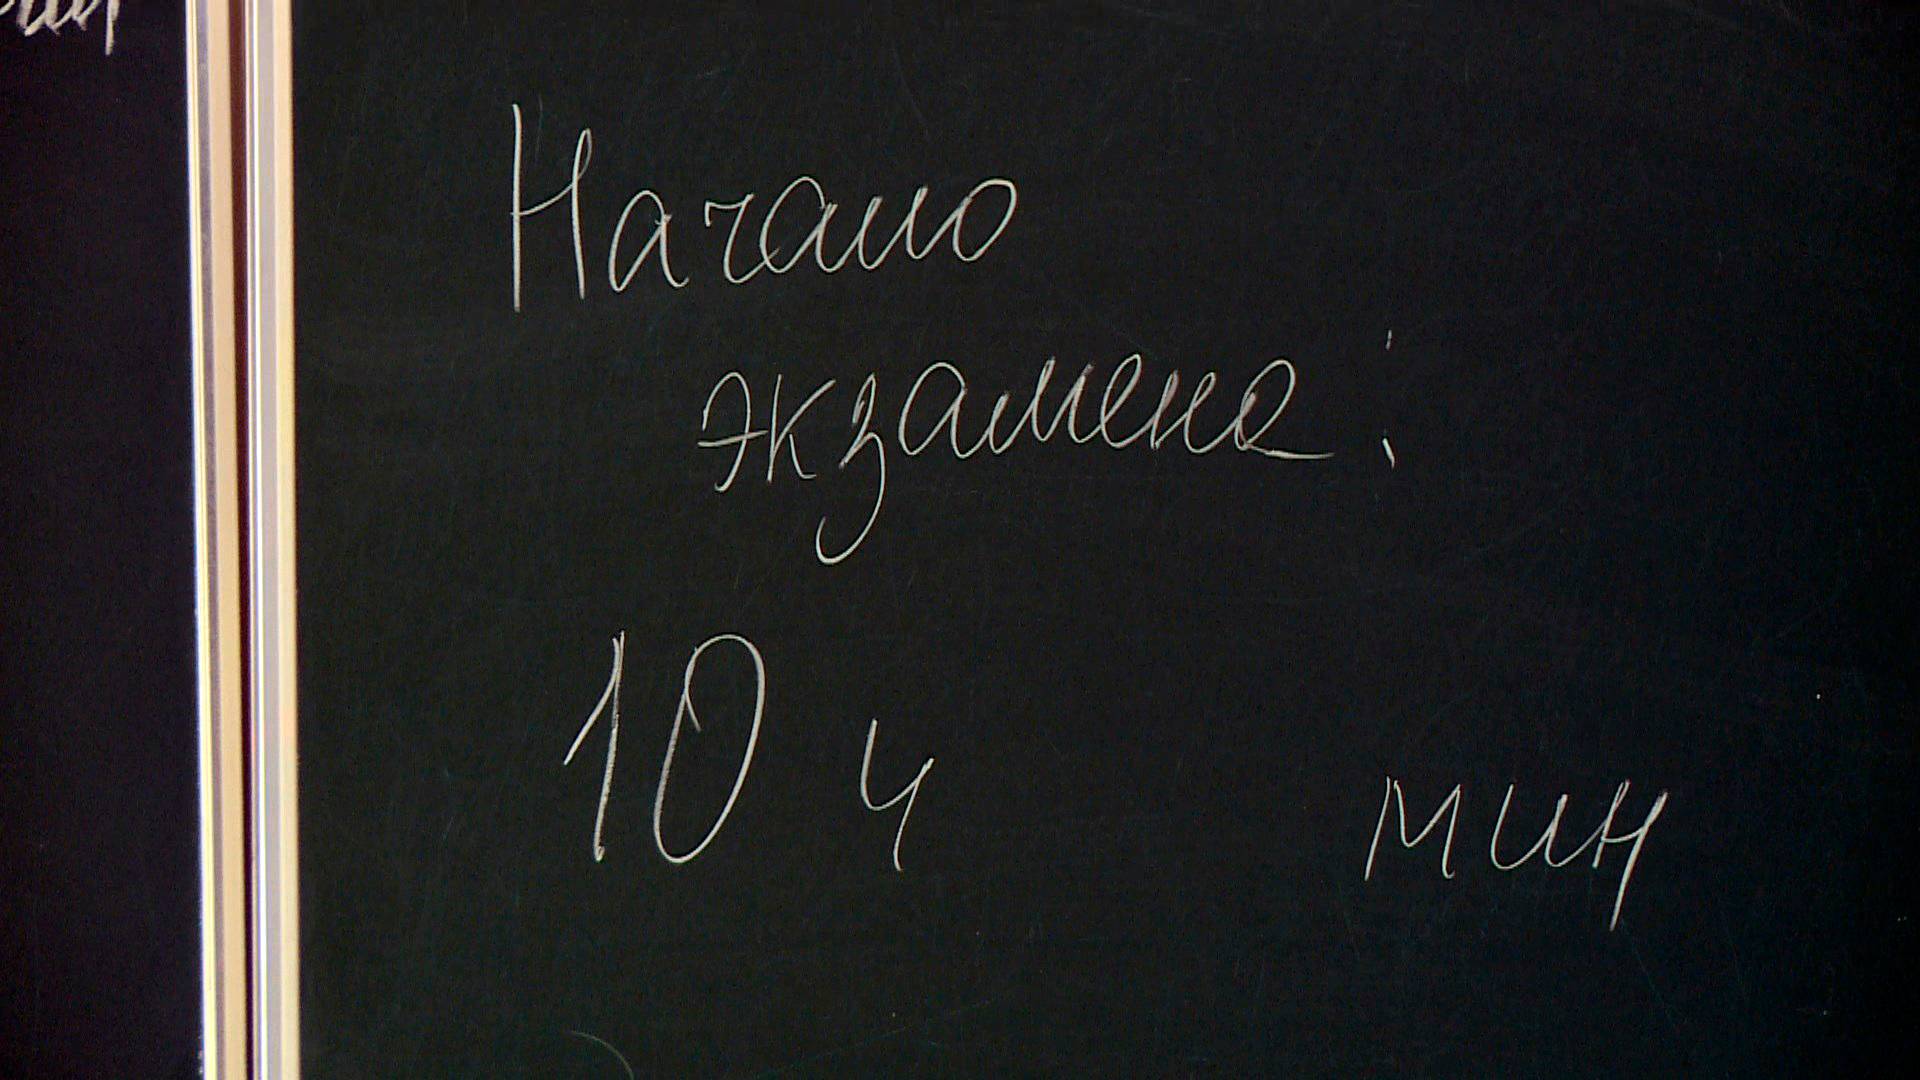 Начало
экзамена:
10 ч мин